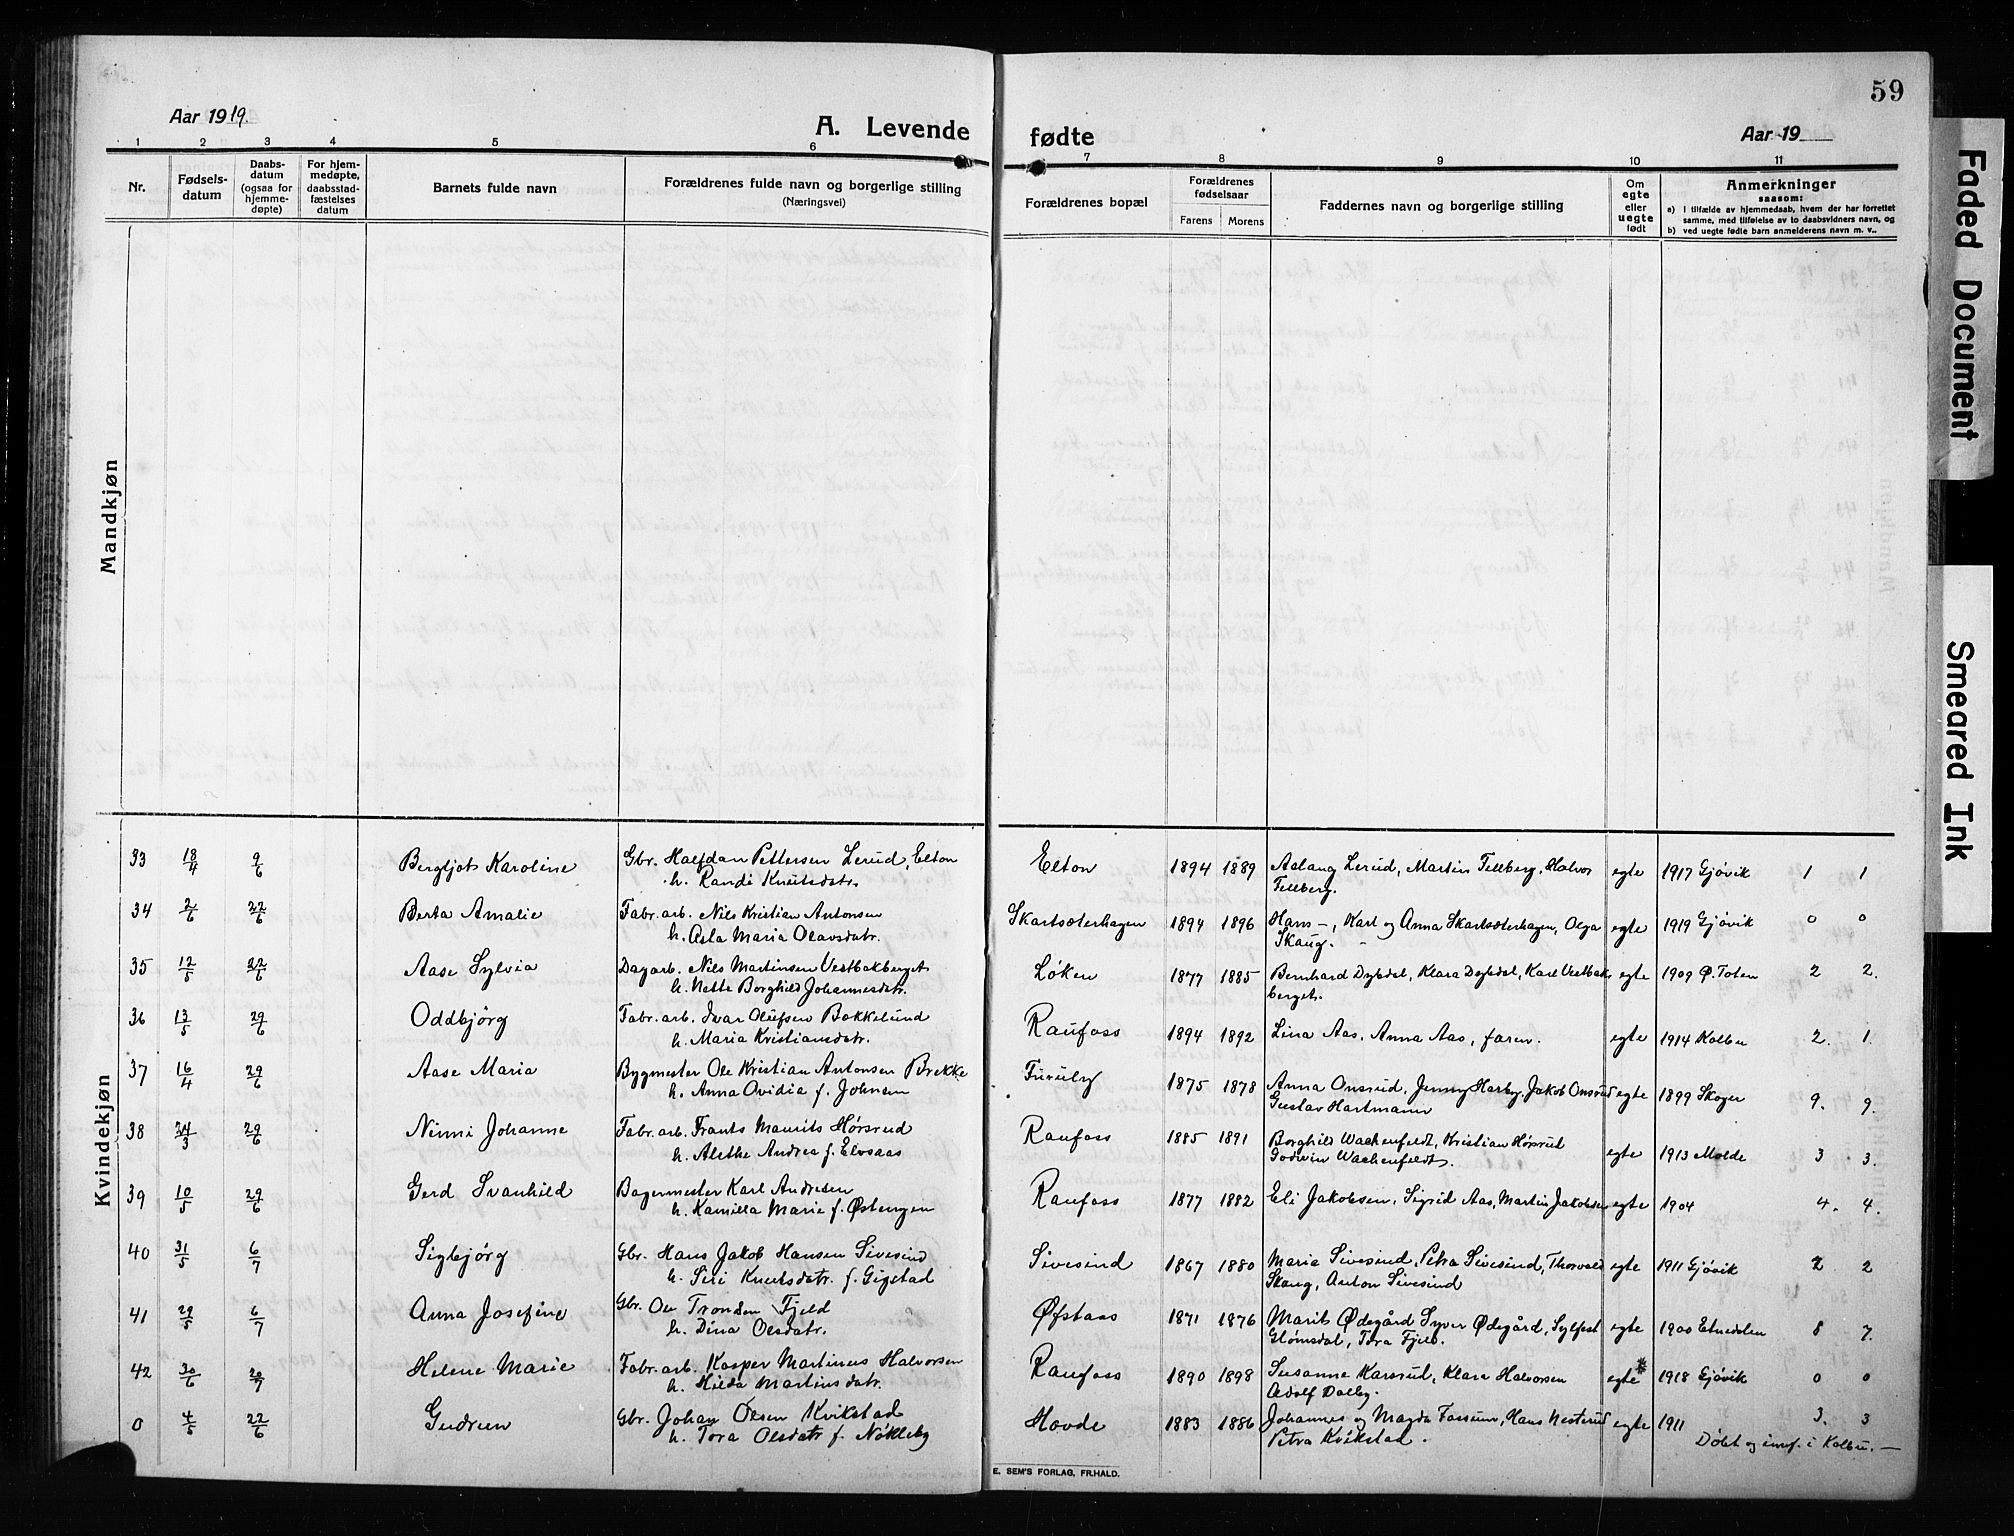 59
Aar 1919.
A. Levende fødte
Aar 19
1 2 3 4 5 6 7 8 9 10 11
Nr.
Fødsels-
datum
Daabs-
datum
(ogsaa for
hjemme-
døpte)
For hjem-
medøpte,
daabsstad-
fæstelses
datum
Barnets fulde navn
Forældrenes fulde navn og borgerlige stilling
(Næringsvei)
Forældrenes bopæl
Forældrenes
fødselsaar
Farens Morens
Faddernes navn og borgerlige stilling
Om
egte
eller
uegte
født
Anmerkninger
saasom:
a) i tilfælde av hjemmedaab, hvem der har forrettet
samme, med tilføielse av to daabsvidners navn, og
b) ved uegte fødte barn anmelderens navn m. v..
Mandkjøn
Kvindekjøn
33 18/4 9/6 Bergljot Karoline Gbr. Halfdan Pettersen Lerud, Elton Elton 1894 1889 Aslaug Lerud, Martin Tellberg, Halvor egte 1917 Gjøvik 1 1
h. Randi Knutsdatr. Tellberg.
34 2/6 22/6 Berta Amalie Fabr.arb. Nils Kristian Antonsen Skartsæterhagen 1894 1896 Hans —, Karl og Anna Skartsæterhagen, Olga egte 1919 Gjøvik 0 0
h. Asla Maria Olavsdatr. Skaug.
35 12/5 22/6 Aase Sylvia Dagarb. Nils Martinsen Vestbakberget Løken 1877 1885 Bernhard Dybdal, Klara Dybdal, Karl Vestbak- egte 1909 Ø. Toten 2 2.
h. Nette Borghild Johannesdatr. berget.
36 13/5 29/6 Oddbjørg Fabr. arb. Ivar Olufsen Bakkelund Raufoss 1894 1892 Lina Aas, Anna Aas, faren. egte 1914 Kolbu 2. 1.
h. Maria Kristiansdatr.
37 16/4 29/6 Aase Maria Bygmester Ole Kristian Antonsen Brekke Furuly 1875 1878 Anna Onsrud, Jenny Harby, Jakob Onsrud egte 1899 Skoger 9. 9.
h. Anna Ovidia f. Johnsen Gustav Hartmann
38 24/3 29/6 Ninni Johanne Fabr. arb. Frants Maurits Hørsrud Raufoss 1885 1891 Borghild Wachenfeldt, Kristian Hørsrud egte 1913 Molde 3 3.
h. Alethe Andrea f. Elvsaas Godwin Wachenfeldt.
39 10/5 29/6 Gerd Svanhild Bagermester Karl Andresen Raufoss 1877 1882 Eli Jakobsen, Sigrid Aas, Martin Jakobsen egte 1904 4. 4.
h. Kamilla Marie f. Østengen
40 31/5 6/7 Sigbjørg Gbr. Hans Jakob Hansen Sivesind Sivesind 1867 1880 Maria Sivesind, Petra Sivesind, Thorvald egte 1911 Gjøvik 2 2
h. Siri Knutsdatr. f. Gigstad Skaug, Anton Sivesind
41 29/5 6/7 Anna Josefine Gbr. Ole Tronsen Fjeld Øfstaas 1871 1876 Marit Ødegård Syver Ødegård, Sylfest egte 1900 Etnedalen 8 7.
h. Dina Olsdatr. Glømsdal, Tora Fjeld.
42 30/6 20/7 Helene Marie Fabr. arb. Kasper Martinius Halvorsen Raufoss 1890 1898 Susanne Karsrud, Klara Halvorsen egte* 1918 Gjøvik 0 0
h. Hilda Martinsdatr. Adolf Dalby.
0 4/5 22/6 Gudrun Gbr. Johan Olsen Kvikstad Hovde 1883 1886 Johannes og Magda Fossum, Hans Nesterud egte 1911 3. 3
h. Tora Olsdatr f. Nøkleby Petra Kvikstad. Døbt og innf. i Kolbu. —
E. SEM'S FORLAG, FR.HALD.
Faded Document
Smeared Ink